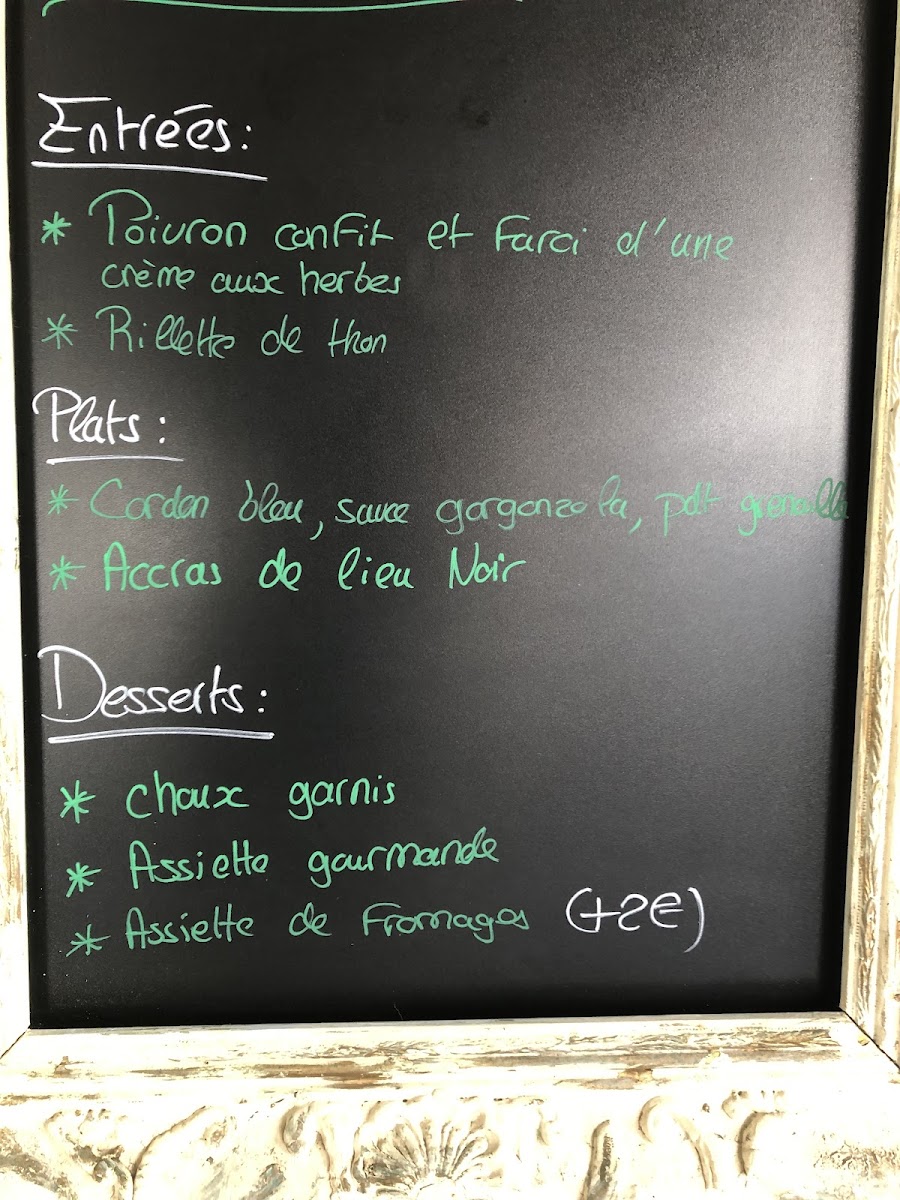 Entrées :
* Poivron confit et farci d'une
crème aux herbes
* Rillette de thon
Plats :
* Cordon bleu, sauce gorgonzola, pdt grenaille
* Accras de lieu Noir
Desserts :
* choux garnis
* Assiette gourmande
* Assiette de Fromages (+2€)